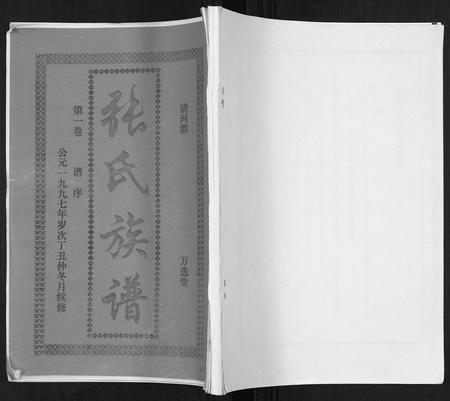 清河郡
万选堂
张氏族谱
第一卷 谱序
公元一九九七年岁次丁丑仲冬月续修